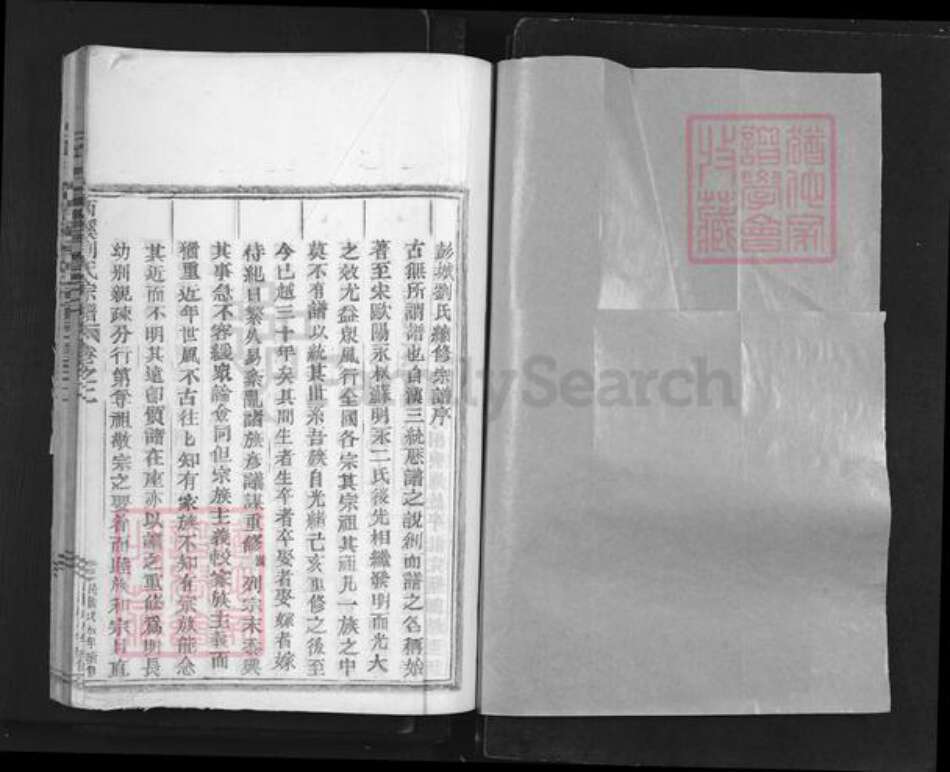 彭城劉氏續修宗譜序
古無所謂譜也自漢三統厯譜之說創而譜之名稱始
著至宋歐陽永叔蘇明永二氏後先相繼發明而光大
之效尤益衆風行全國各宗其宗祖其祖凡一族之中
莫不有譜以統其世系吾族自光緒己亥重修之後至
今已越三十年矣其間生者生卒者卒娶者娶嫁者嫁
待紀日繁久易紊亂諸族彥議謀重修 列宗末忝與
其事急不容緩衆論僉同但宗族主義較家族主義而
猶重近年世風不古往々知有家族不知有宗族能念
其近而不明其遠卽質諸在座亦以譜之重修爲明長
幼別親疎分行第尊祖敬宗之要着而睦族和宗

劉氏宗譜 卷之二
譜學會
FamilySearch